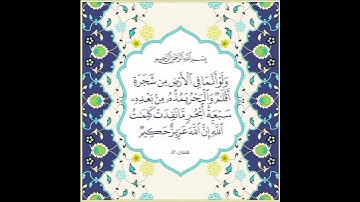 بِسْمِ اللَّهِ الرَّحْمَٰنِ الرَّحِيمِ
وَلَوْ أَنَّمَا فِي الْأَرْضِ مِن شَجَرَةٍ
أَقْلَٰمٌ وَالْبَحْرُ يَمُدُّهُ مِنْ بَعْدِهِ
سَبْعَةُ أَبْحُرٍ مَّا نَفِدَتْ كَلِمَٰتُ
اللَّهِ إِنَّ اللَّهَ عَزِيزٌ حَكِيمٌ